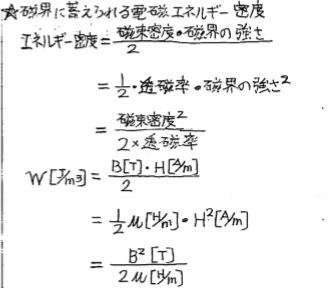 ☆磁界に蓄えられる電磁エネルギー密度
エネルギー密度 = 磁束密度・磁界の強さ / 2
= 1/2・透磁率・磁界の強さ²
= 磁束密度² / 2×透磁率
W[J/m³] = B[T]・H[A/m] / 2
= 1/2 μ[H/m]・H²[A/m]
= B²[T] / 2μ[H/m]